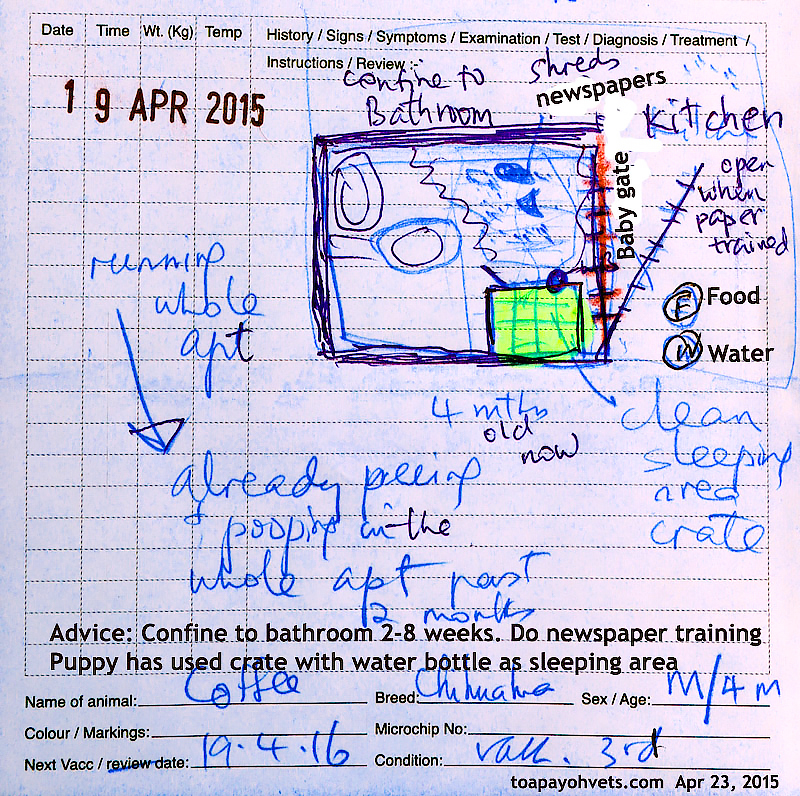 Date Time Wt. (Kg) Temp History / Signs / Symptoms / Examination / Test / Diagnosis / Treatment /
Instructions / Review :-
19 APR 2015
confine to
Bathroom
shreds
newspapers
kitchen
Baby gate
open
when
paper
trained
F Food
W Water
running
whole
apt
4 mths
old
now
clean
sleeping
area
crate
already peeing
& pooping in the
whole apt past
2 months
Advice: Confine to bathroom 2-8 weeks. Do newspaper training
Puppy has used crate with water bottle as sleeping area
Name of animal: Coffee Breed: Chihuahua Sex / Age: M/4m
Colour / Markings: Microchip No:
Next Vacc / review date: 19.4.16 Condition: vacc. 3rd
toapayohvets.com Apr 23, 2015